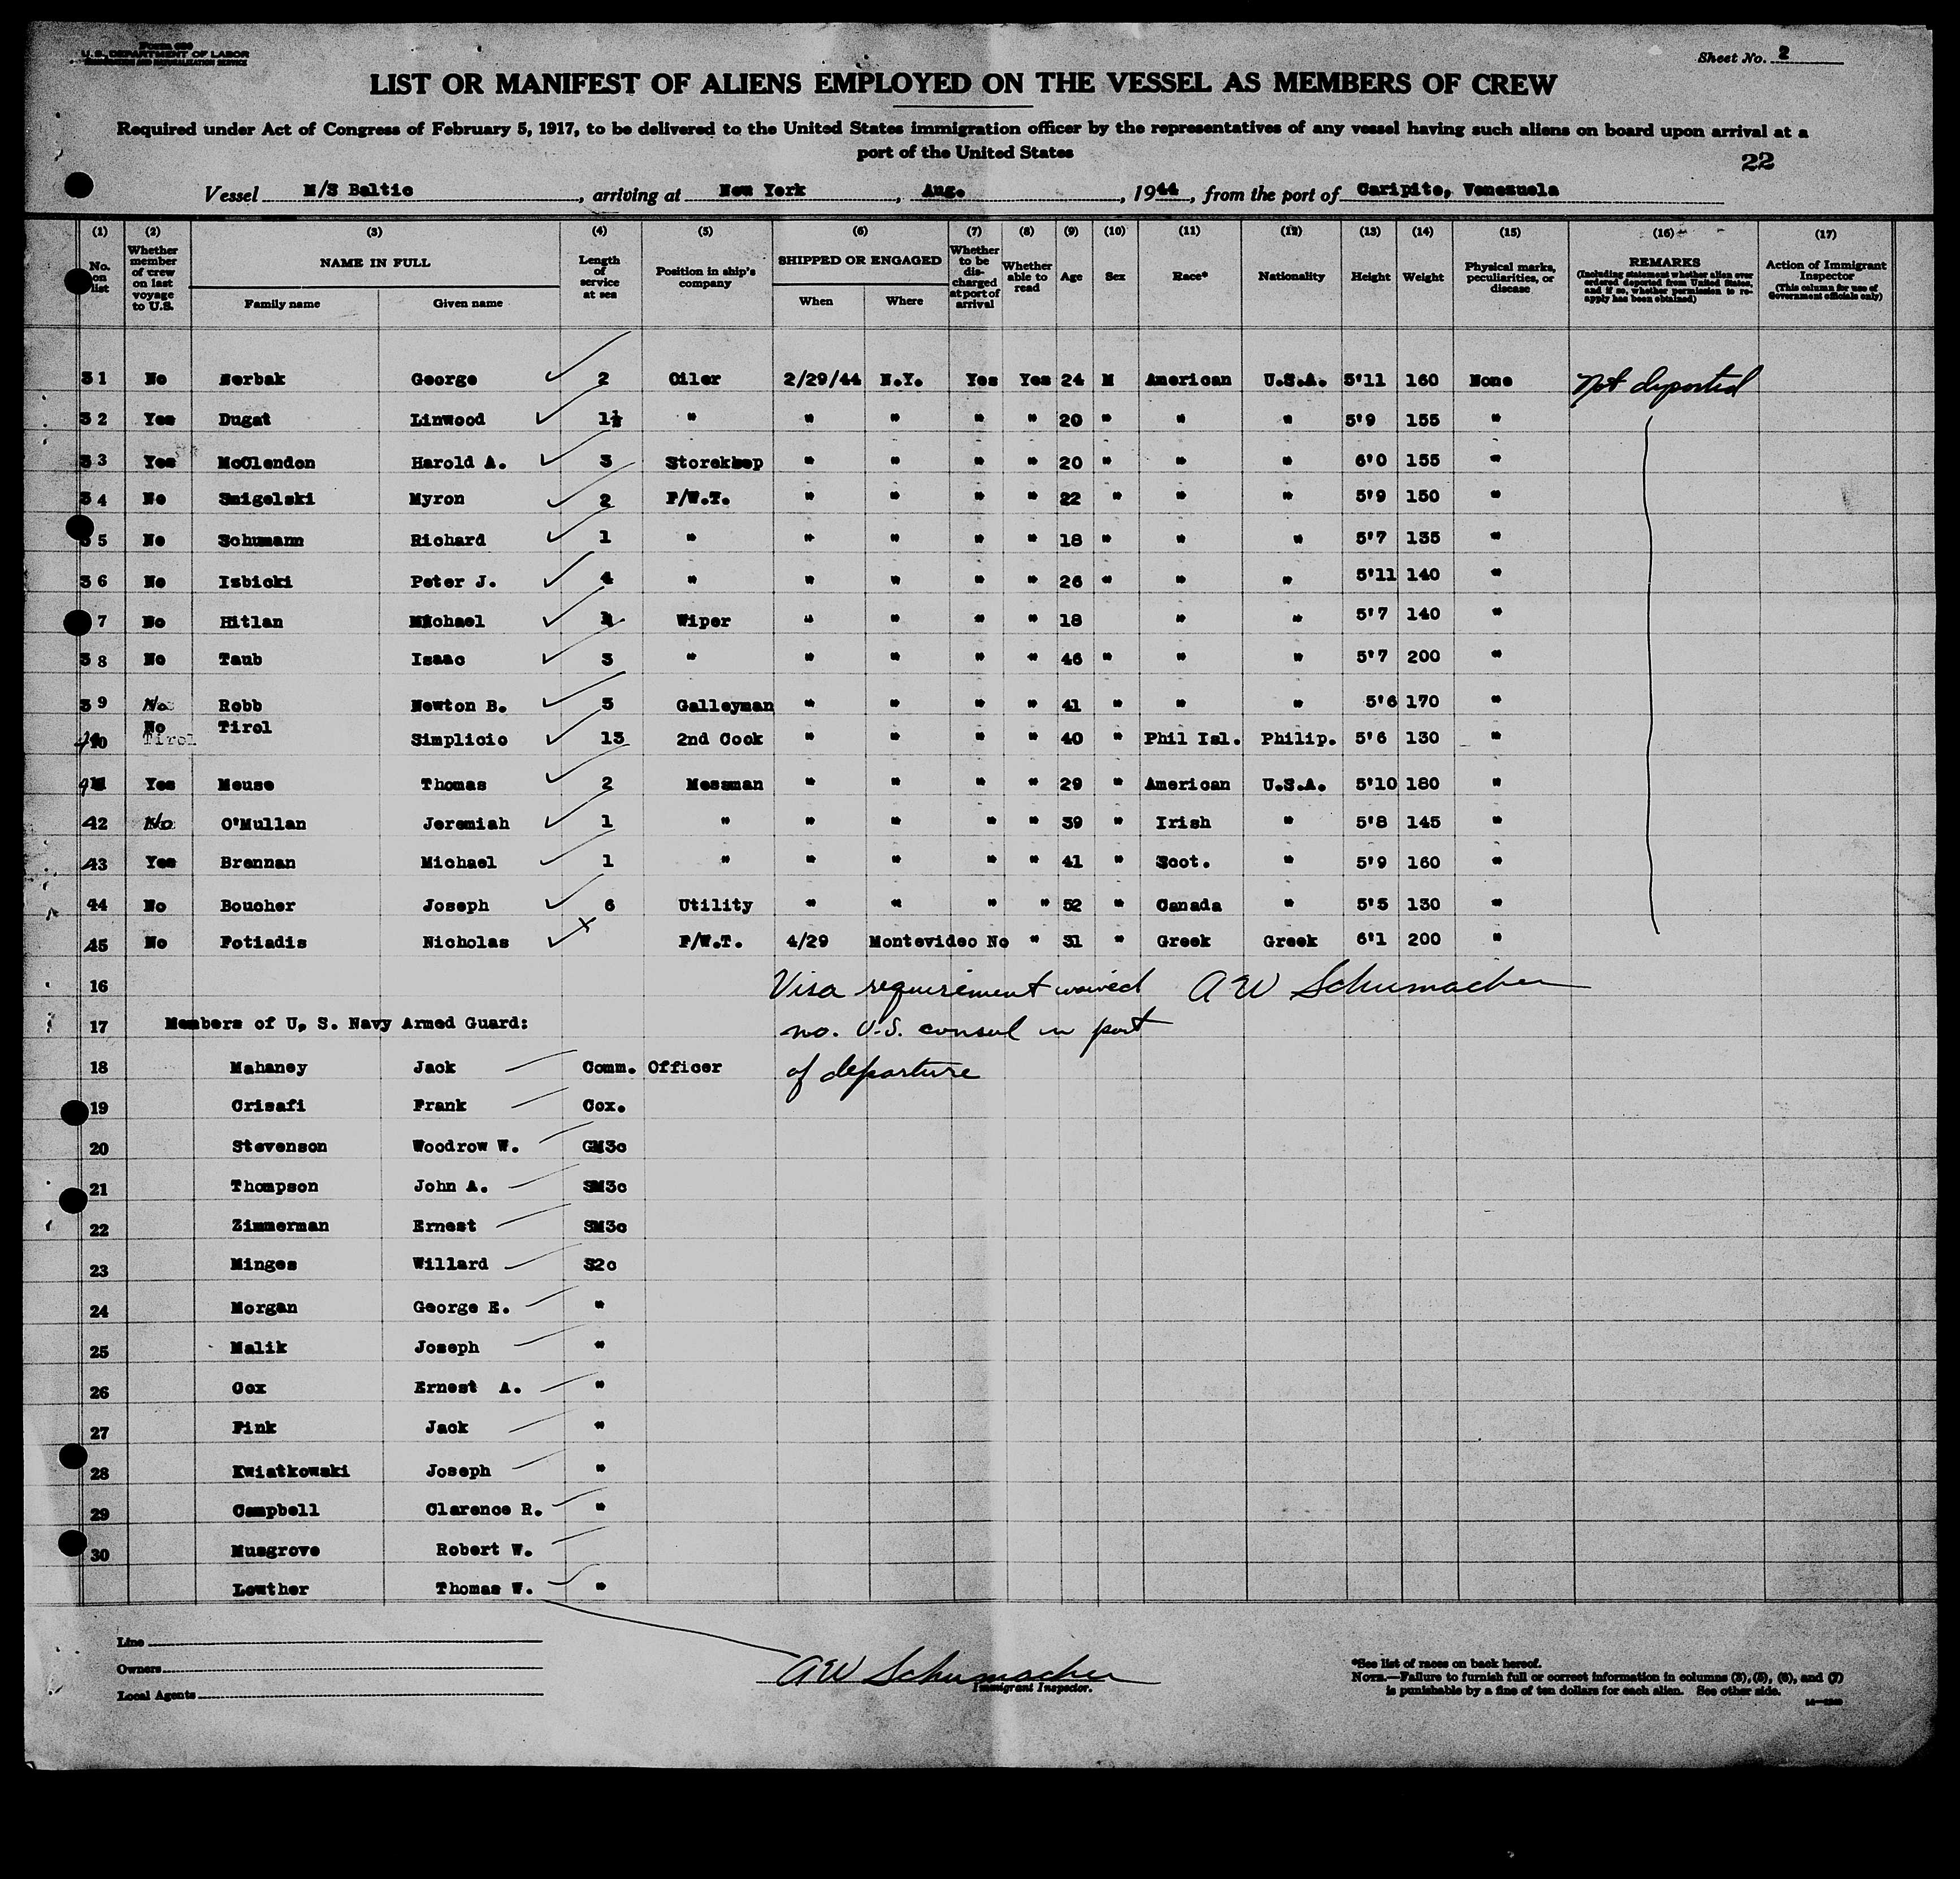 Form 680
U. S. DEPARTMENT OF LABOR
IMMIGRATION AND NATURALIZATION SERVICE
Sheet No. 2
LIST OR MANIFEST OF ALIENS EMPLOYED ON THE VESSEL AS MEMBERS OF CREW
Required under Act of Congress of February 5, 1917, to be delivered to the United States immigration officer by the representatives of any vessel having such aliens on board upon arrival at a
port of the United States
22
Vessel M/S Baltic, arriving at New York, Aug., 1944, from the port of Caripito, Venezuela
(1) (2) (3) (4) (5) (6) (7) (8) (9) (10) (11) (12) (13) (14) (15) (16) (17)
No. on list
Whether member of crew on last voyage to U.S.
NAME IN FULL
Family name Given name
Length of service at sea
Position in ship's company
SHIPPED OR ENGAGED
When Where
Whether to be discharged at port of arrival
Whether able to read
Age
Sex
Race*
Nationality
Height
Weight
Physical marks, peculiarities, or disease
REMARKS
(Including statement whether alien ever ordered deported from United States, and if so, whether permission to reapply has been obtained)
Action of Immigrant Inspector
(This column for use of Government officials only)
31 No Nerbak George 2 Oiler 2/29/44 N.Y. Yes Yes 24 M American U.S.A. 5'11 160 None Not deported
32 Yes Dugat Linwood 1½ " " " " " 20 " " " 5'9 155 "
33 Yes McClendon Harold A. 3 Storekeep " " " " 20 " " " 6'0 155 "
34 No Smigelski Myron 2 F/W.T. " " " " 22 " " " 5'9 150 "
35 No Schumann Richard 1 " " " " " 18 " " " 5'7 135 "
36 No Isbicki Peter J. 4 " " " " " 26 " " " 5'11 140 "
7 No Hitlan Michael Wiper " " " " 18 " " 5'7 140 "
38 No Taub Isaac 3 " " " " " 46 " " " 5'7 200 "
39 No Robb Newton B. 5 Galleyman " " " " 41 " " " 5'6 170 "
40 No Tirol Tirol Simplicio 13 2nd Cook " " " " 40 " Phil Isl. Philip. 5'6 130 "
41 Yes Meuse Thomas 2 Messman " " " " 29 " American U.S.A. 5'10 180 "
42 No O'Mullan Jeremiah 1 " " " " " 39 " Irish " 5'8 145 "
43 Yes Brennan Michael 1 " " " " " 41 " Scot. " 5'9 160 "
44 No Boucher Joseph 6 Utility " " " " 52 " Canada " 5'5 130 "
45 No Fotiadis Nicholas x F/W.T. 4/29 Montevideo No " 31 " Greek Greek 6'1 200 "
16 Visa requirement waived A W Schumacher
17 Members of U. S. Navy Armed Guard: no. U.S. consul in port
18 Mahaney Jack Comm. Officer of departure
19 Crisafi Frank Cox.
20 Stevenson Woodrow W. GM3c
21 Thompson John A. SM3c
22 Zimmerman Ernest SM3c
23 Minges Willard S2c
24 Morgan George E. "
25 Malik Joseph "
26 Cox Ernest A. "
27 Fink Jack "
28 Kwiatkowski Joseph "
29 Campbell Clarence R. "
30 Musgrove Robert W.
Lowther Thomas W. "
Line
Owners
Local Agents
A W Schumacher
Immigrant Inspector.
*See list of races on back hereof.
NOTE.—Failure to furnish full or correct information in columns (3), (5), (6), and (7)
is punishable by a fine of ten dollars for each alien. See other side.